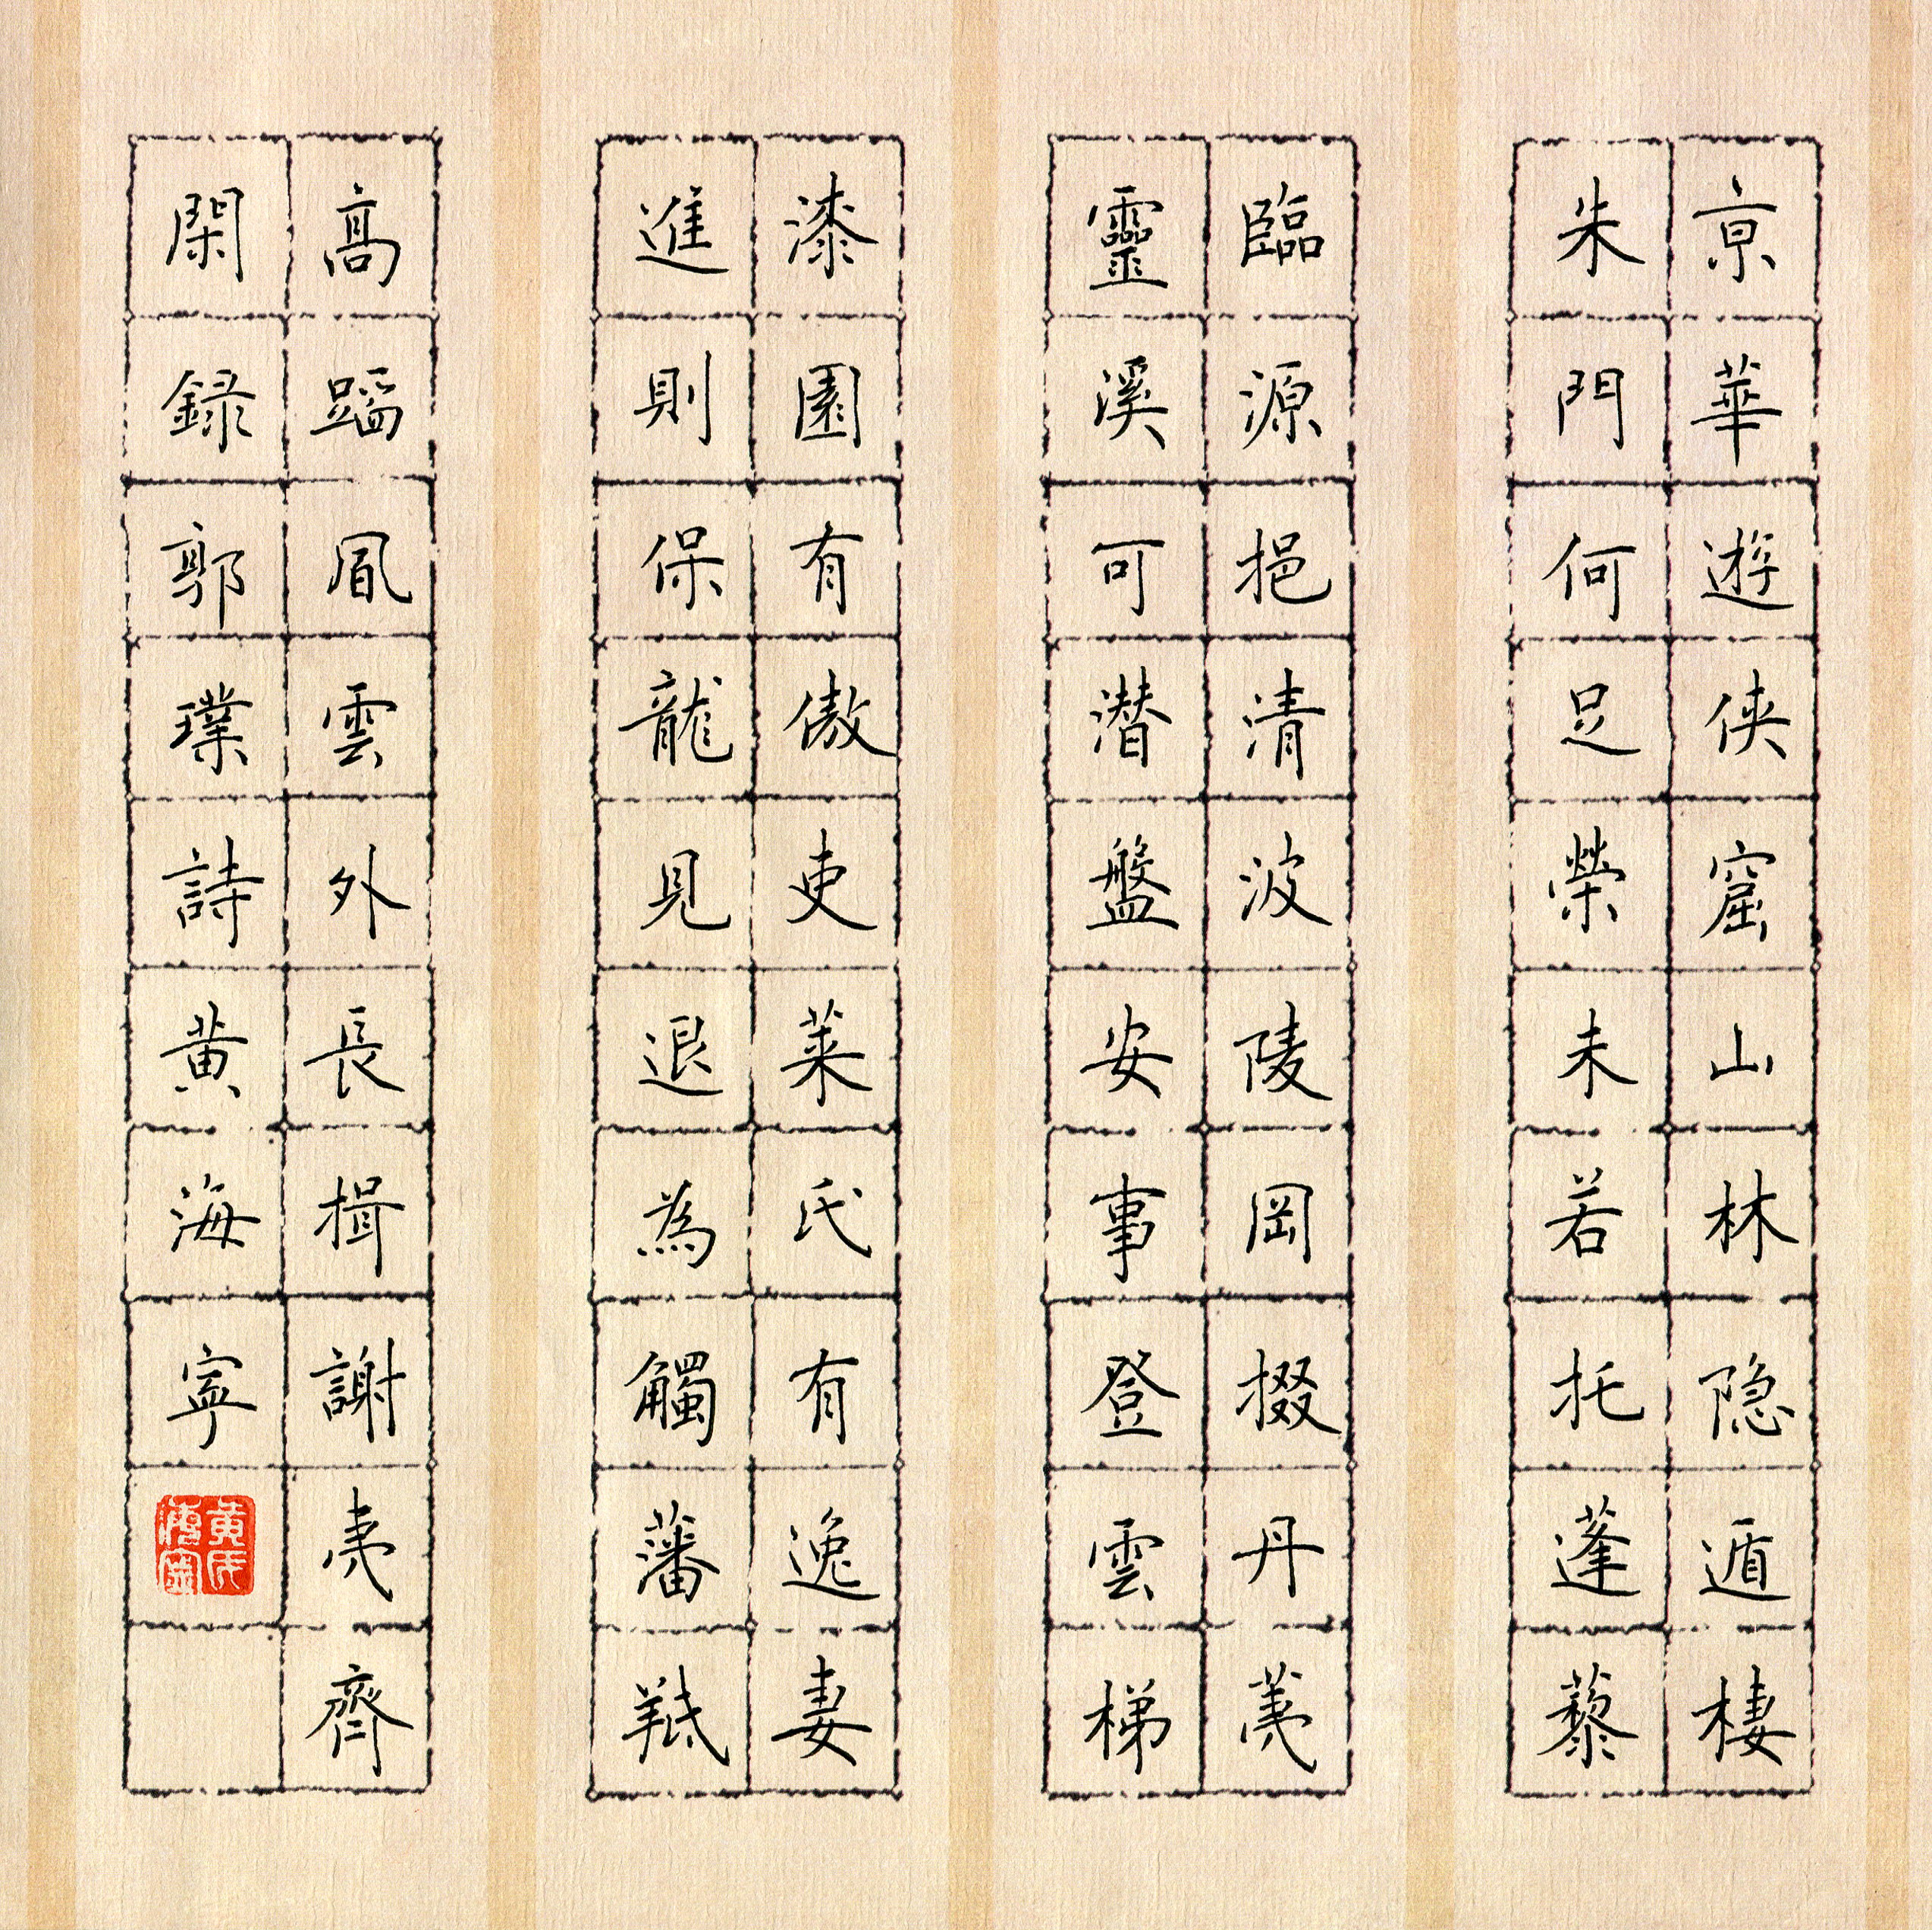 亰華遊侠窟山林隐遁棲
朱門何足榮未若托蓬藜
臨源挹清波陵岡掇丹荑
靈溪可潜盤安事登雲梯
漆園有傲吏莱氏有逸妻
進則保龍見退為觸藩羝
髙蹈風雲外長揖謝夷齊
閑録郭璞詩黄海寧